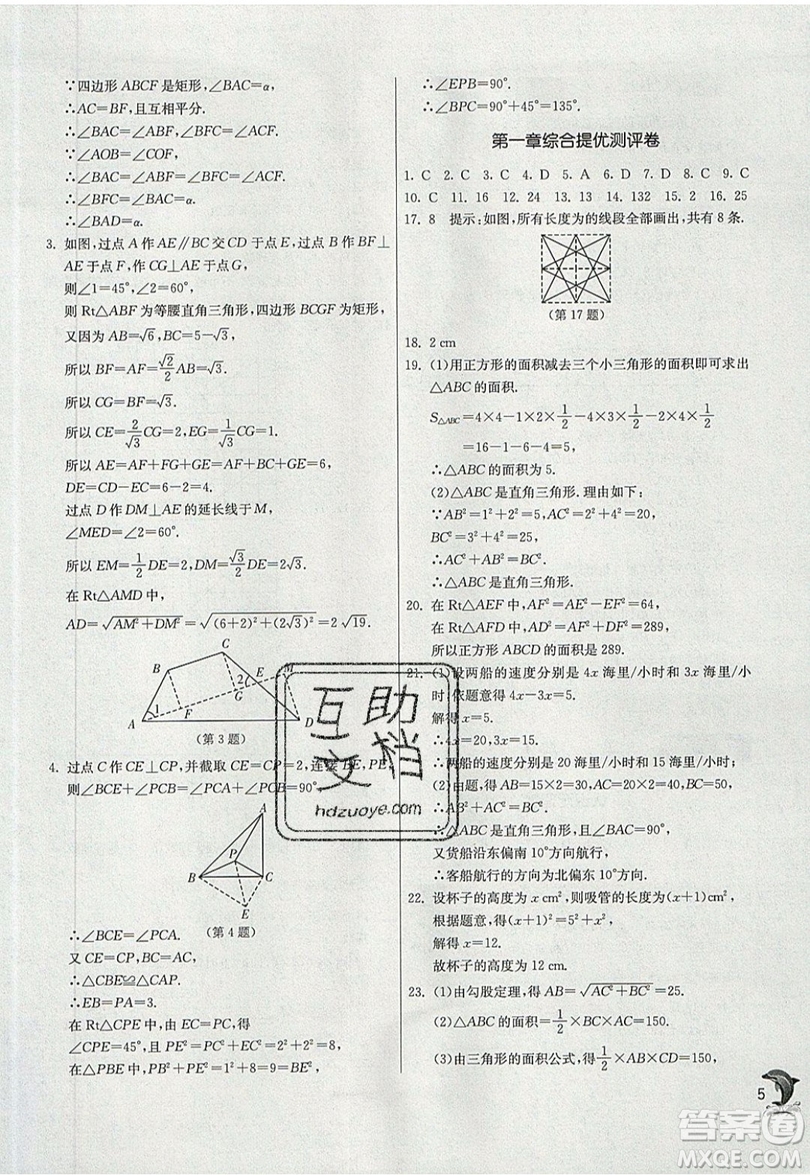 ∵四边形 ABCF 是矩形,∠BAC=α,
∴AC=BF,且互相平分.
∴∠BAC=∠ABF,∠BFC=∠ACF.
∵∠AOB=∠COF,
∴∠BAC=∠ABF=∠BFC=∠ACF.
∴∠BAC=∠BFC=α.
∴∠BAD=α.
3. 如图,过点 A 作 AE∥BC 交 CD 于点 E,过点 B 作 BF⊥
AE 于点 F,作 CG⊥AE 于点 G,
则∠1=45°,∠2=60°.
则 Rt△ABF 为等腰直角三角形,四边形 BCGF 为矩形,
又因为 AB=√6,BC=5-√3,
所以 BF=AF=√2/2 AB=√3.
所以 CG=BF=√3.
所以 CE=2/√3 CG=2,EG=1/√3 CG=1.
所以 AE=AF+FG+GE=AF+BC+GE=6,
DE=CD-CE=6-2=4.
过点 D 作 DM⊥AE 的延长线于 M,
∠MED=∠2=60°.
所以 EM=1/2 DE=2,DM=√3/2 DE=2√3.
在 Rt△AMD 中,
AD=√(AM²+DM²)=√((6+2)²+(2√3)²)=2√19.
C
B
E
M
2
G
1
F
A
D
(第 3 题)
4. 过点 C 作 CE⊥CP,并截取 CE=CP=2,连接 BE,PE,
则∠BCE+∠BCP=∠PCA+∠BCP=90°.
A
P
B
C
E
(第 4 题)
∴∠BCE=∠PCA.
又 CE=CP,AC=BC,
∴△CBE≌△CAP.
∴EB=PA=3.
在 Rt△CPE 中,由 CE=CP,得
∠CPE=45°,PE²=PC²+CE²=2²+2²=8.
在△PBE 中,PB²+PE²=1+8=9=BE²,
∴∠EPB=90°.
∴∠BPC=90°+45°=135°.
第一章综合提优测评卷
1. C 2. C 3. C 4. D 5. A 6. C 7. D 8. D 9. C
10. C 11. 16 12. 24 13. 13 14. 132 15. 2 16. 25
17. 8 提示:如图,所有长度为的线段全部画出,共有 8 条.
(第 17 题)
18. 2 cm
19. (1)用正方形的面积减去三个小三角形的面积即可求出
△ABC 的面积.
S△ABC=4×4-1×2×1/2-4×3×1/2-2×4×1/2
=16-1-6-4=5.
∴△ABC 的面积为 5.
(2)△ABC 是直角三角形.理由如下:
∵AB²=1²+2²=5,AC²=2²+4²=20,
BC²=3²+4²=25,
∴AC²+AB²=BC².
∴△ABC 是直角三角形.
20. 在 Rt△AEF 中,AF²=EF²-AE²=64,
在 Rt△AFD 中,AD²=AF²+DF²=289,
所以正方形 ABCD 的面积是 289.
21. (1)设两船的速度分别是 4x 海里/小时和 3x 海里/小
时,依题意得 4x-3x=5.
解得 x=5.
∴4x=20,3x=15.
∴两船的速度分别是 20 海里/小时和 15 海里/小时.
(2)由题,得 AB=15×2=30,AC=20×2=40,BC=50,
∴AB²+AC²=BC².
∴△ABC 是直角三角形,且∠BAC=90°.
又货船沿东偏南 10°方向航行,
∴客船航行的方向为北偏东 10°方向.
22. 设杯子的高度为 x cm²,则吸管的长度为(x+1)cm,
根据题意,得(x+1)²=5²+x²,
解得 x=12.
故杯子的高度为 12 cm.
23. (1)由勾股定理,得 AB=√(AC²+BC²)=25.
(2)△ABC 的面积=1/2×BC×AC=150.
(3)由三角形的面积公式,得1/2×AB×CD=150,
5
互助
文档
hdzuoye.com
答案圈
MXQE.COM